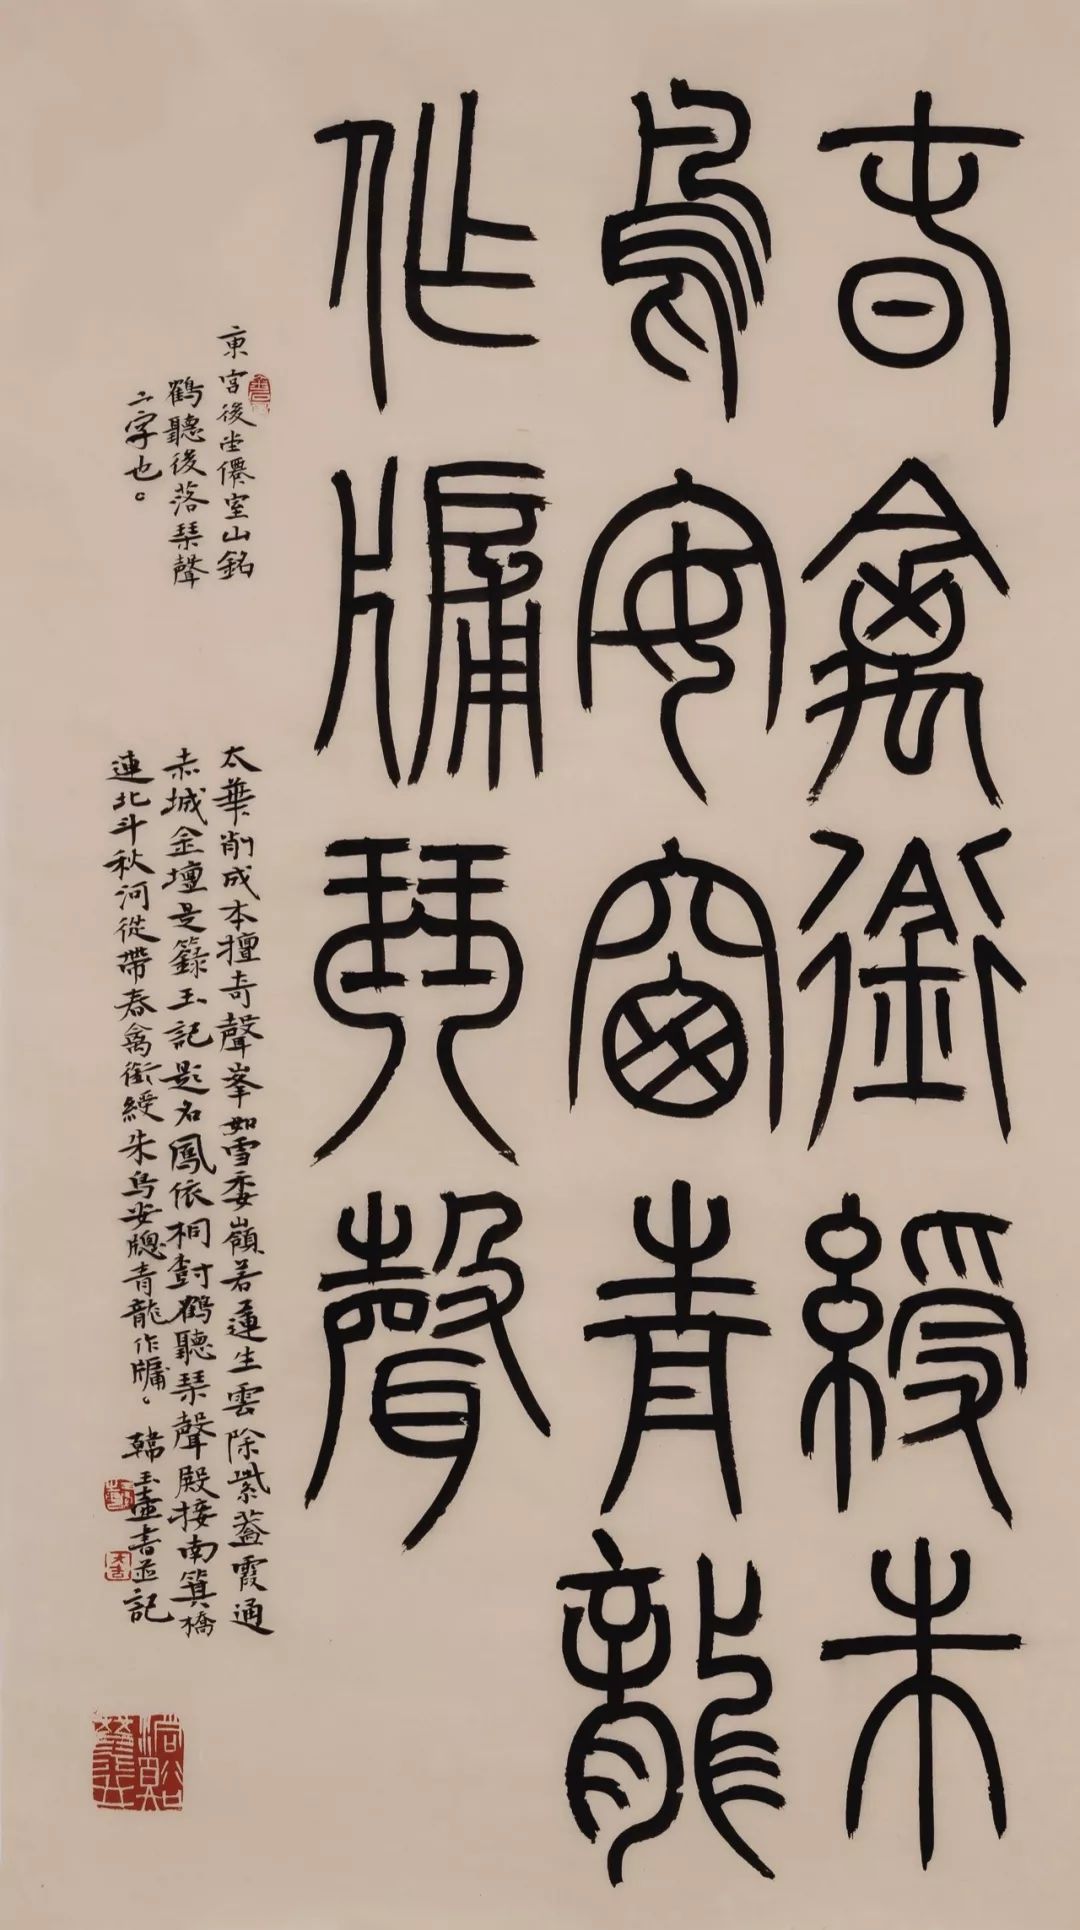 春禽銜綬朱
鳥安窗青龍
作牖琴聲
東宮後坣僊室山銘
鶴聽後落琴聲
二字也。
太華削成本擅奇聲峯如雪委嶺若蓮生雲除紫蓋霞通
赤城金壇是籙玉記題名鳳依桐尌鶴聽琴聲殿接南箕橋
連北斗秋河從帶春禽銜綬朱鳥安牕青龍作牖。韓玉壺書並記
大吉